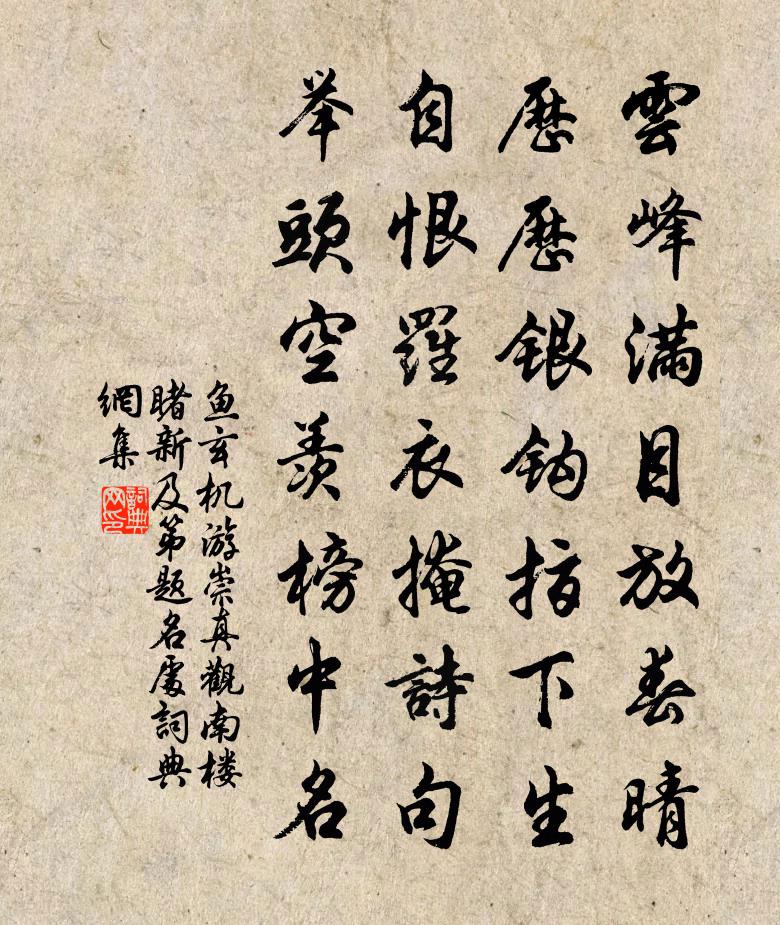 雲峰滿目放春晴
歷歷銀鈎指下生
自恨羅衣掩詩句
举頭空羨榜中名
魚玄机游崇真觀南楼
睹新及第題名處詞典
網集
詞典网印